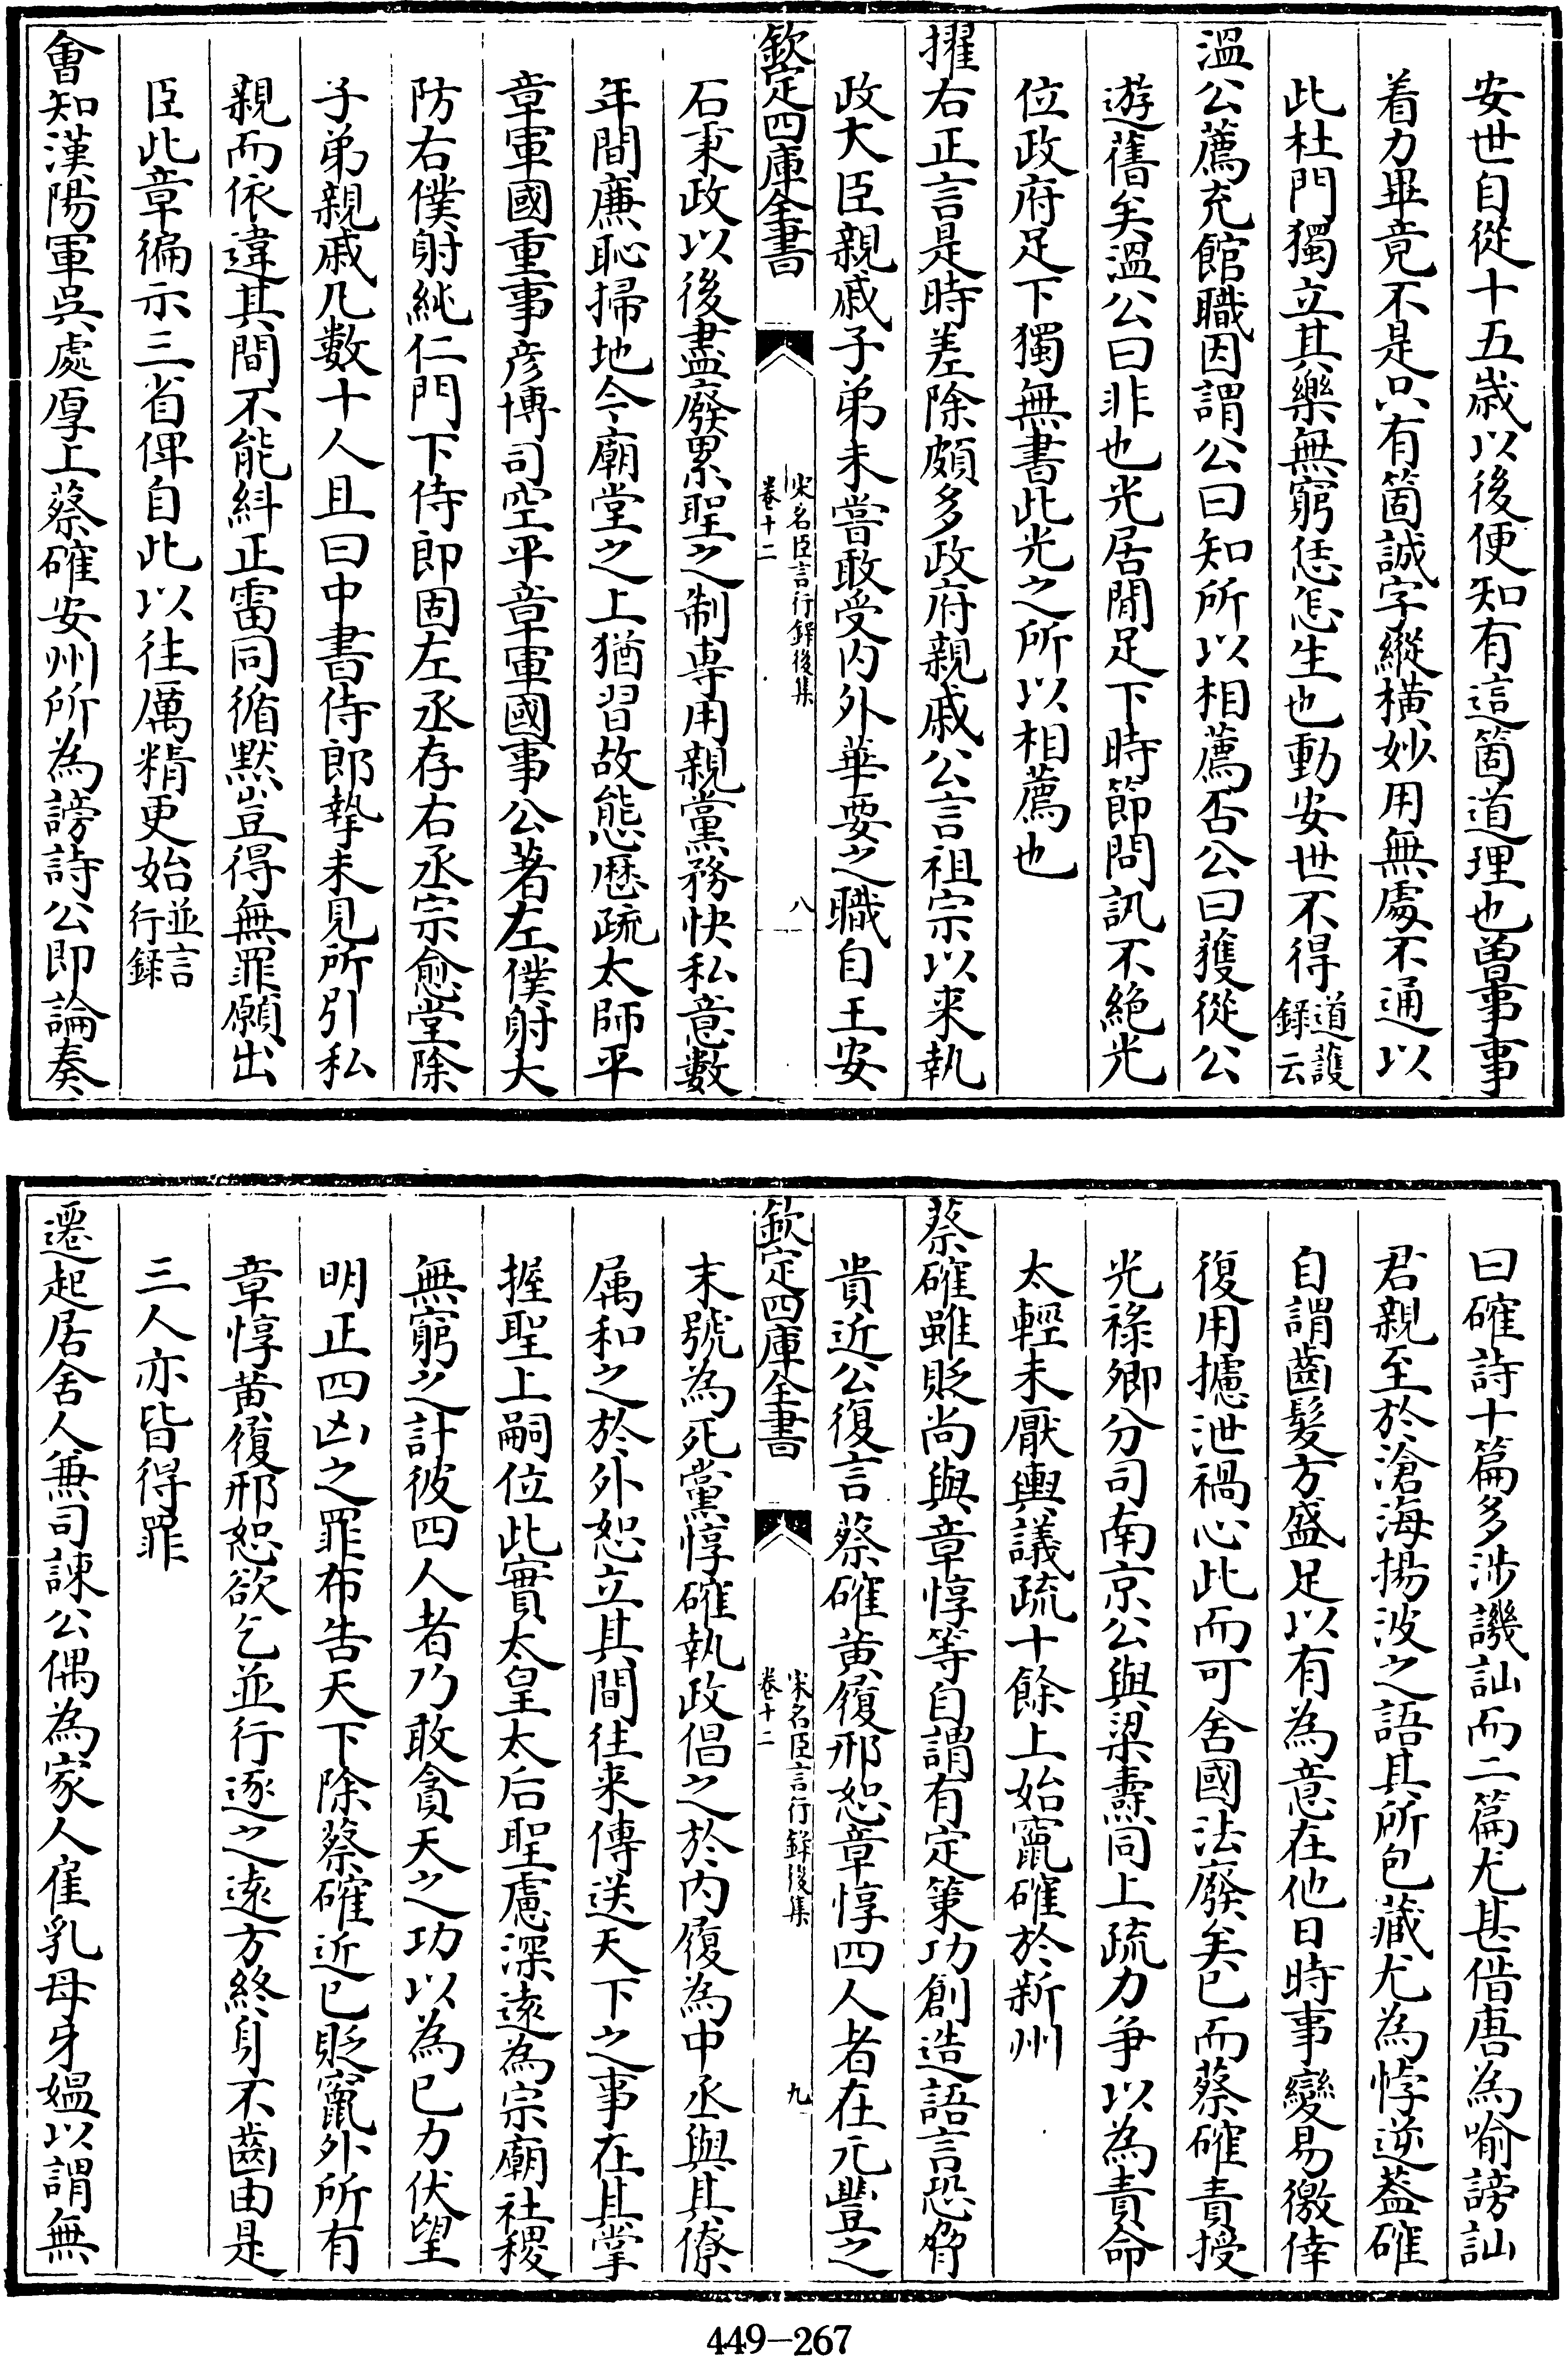 安世自從十五歲以後便知有這箇道理也曾事事
着力畢竟不是只有箇誠字縱橫妙用無處不通以
此杜門獨立其樂無窮恁怎生也動安世不得道護錄云
溫公薦充館職因謂公曰知所以相薦否公曰獲從公
遊舊矣溫公曰非也光居閒足下時節問訊不絶光
位政府足下獨無書此光之所以相薦也
擢右正言是時差除頗多政府親戚公言祖宗以来執
政大臣親戚子弟未嘗敢受内外華要之職自王安
欽定四庫全書
宋名臣言行錄後集
卷十二
八
石秉政以後盡廢累聖之制専用親黨務快私意數
年間廉恥掃地今廟堂之上猶習故態歴疏太師平
章軍國重事彦博司空平章軍國事公著左僕射大
防右僕射純仁門下侍郎固左丞存右丞宗愈堂除
子弟親戚凡數十人且曰中書侍郎摯未見所引私
親而依違其間不能糾正雷同循默豈得無罪願出
臣此章徧示三省俾自此以往厲精更始並言行錄
會知漢陽軍吳處厚上蔡確安州所為謗詩公即論奏
曰確詩十篇多涉譏訕而二篇尤甚借唐為喻謗訕
君親至於滄海揚波之語其所包藏尤為悖逆蓋確
自謂齒髮方盛足以有為意在他日時事變易徼倖
復用攄泄禍心此而可舍國法廢矣已而蔡確責授
光祿卿分司南京公與梁燾同上疏力争以為責命
太輕未厭輿議疏十餘上始竄確於新州
蔡確雖貶尚與章惇等自謂有定策功創造語言恐脅
貴近公復言蔡確黄履邢恕章惇四人者在元豐之
欽定四庫全書
宋名臣言行錄後集
卷十二
九
末號為死黨惇確執政倡之於内履為中丞與其僚
属和之於外恕立其間往来傳送天下之事在其掌
握聖上嗣位此實太皇太后聖慮深遠為宗廟社稷
無窮之計彼四人者乃敢貪天之功以為已力伏望
明正四凶之罪布告天下除蔡確近已貶竄外所有
章惇黄履邢恕欲乞並行逐之逺方終身不齒由是
三人亦皆得罪
遷起居舍人兼司諫公偶為家人雇乳母牙媪以謂無
449-267